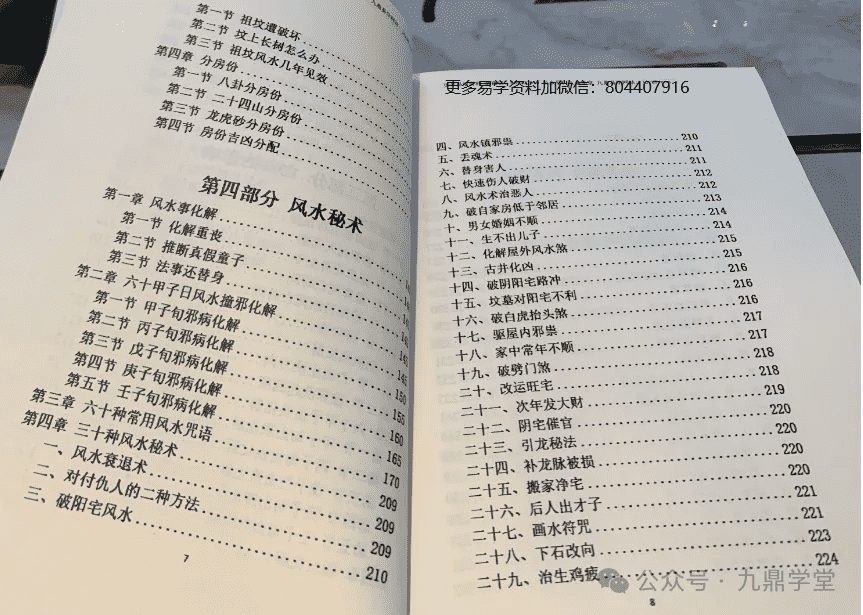 第一节 祖坟遭破坏
第二节 坟上长树怎么办
第三节 祖坟风水几年见效
第四章 分房份
第一节 八卦分房份
第二节 二十四山分房份
第三节 龙虎砂分房份
第四节 房份吉凶分配
第四部分 风水秘术
第一章 风水事化解
第一节 化解重丧
第二节 推断真假童子
第三节 法事还替身
第二章 六十甲子日风水撞邪化解
第一节 甲子旬邪病化解
第二节 丙子旬邪病化解
第三节 戊子旬邪病化解 145
第四节 庚子旬邪病化解 150
第五节 壬子旬邪病化解 155
第三章 六十种常用风水咒语 160
第四章 三十种风水秘术 165
一、风水衰退术 170
二、对付仇人的二种方法 209
三、破阳宅风水 209
209
210
7
更多易学资料加微信：804407916
四、风水镇邪祟 210
五、丢魂术 211
六、替身害人 211
七、快速伤人破财 212
八、风水术治恶人 212
九、破自家房低于邻居 213
十、男女婚姻不顺 214
十一、生不出儿子 214
十二、化解屋外风水煞 215
十三、古井化凶 215
十四、破阴阳宅路冲 216
十五、坟墓对阳宅不利 216
十六、破白虎抬头煞 216
十七、驱屋内邪祟 217
十八、家中常年不顺 217
十九、破劈门煞 218
二十、改运旺宅 218
二十一、次年发大财 219
二十二、阴宅催官 220
二十三、引龙秘法 220
二十四、补龙脉被损 220
二十五、搬家净宅 220
二十六、后人出才子 221
二十七、画水符咒 221
二十八、下石改向 223
二十九、治生鸡瘟 224
8
公众号 · 九鼎学堂